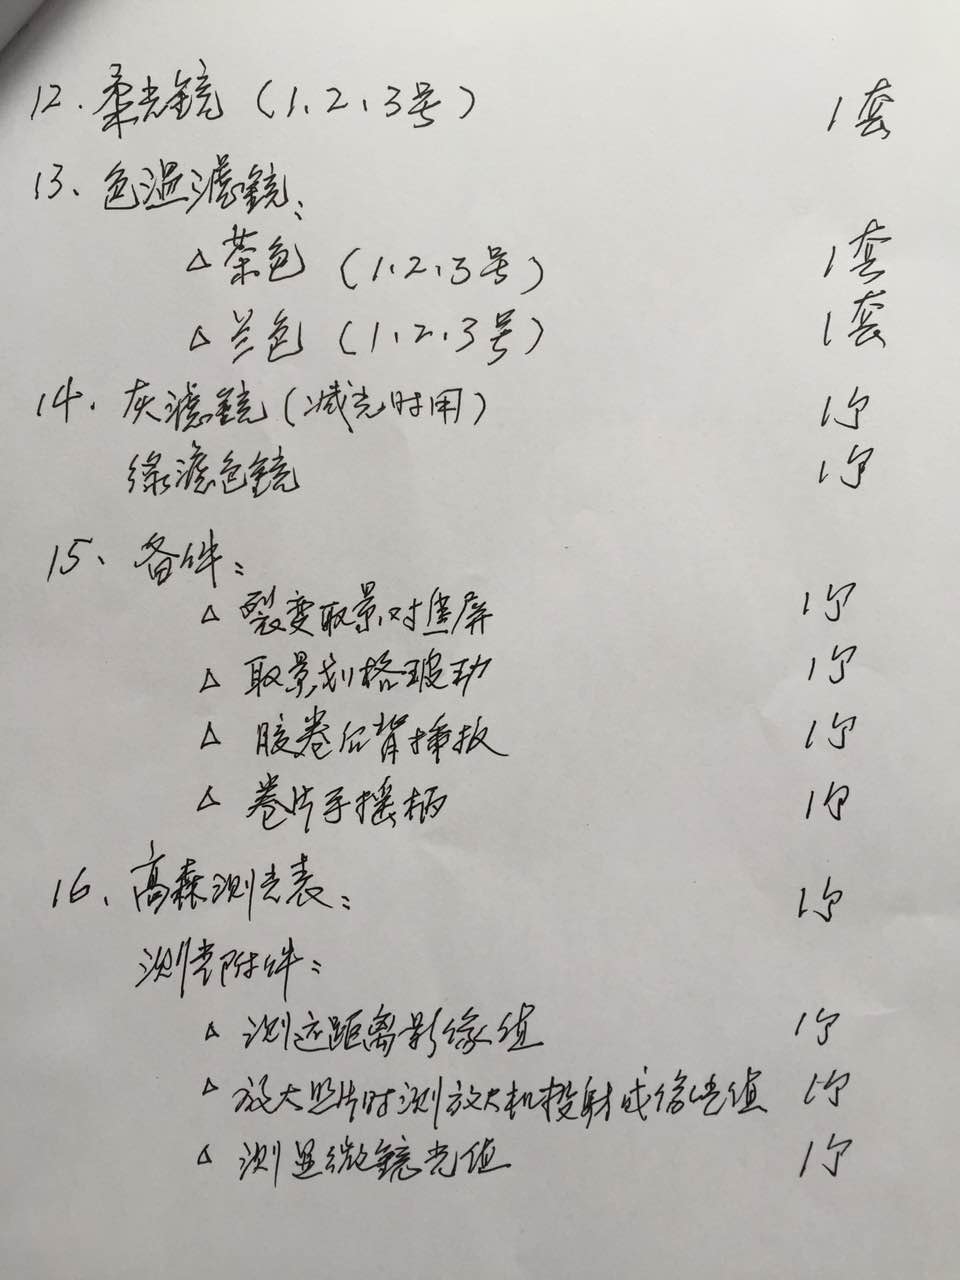 12. 柔光鏡（1、2、3号） 1套
13、色温濾鏡：
△茶色（1、2、3号） 1套
△兰色（1、2、3号） 1套
14、灰濾鏡（减光时用） 1个
綠濾色鏡 1个
15、备件：
△裂变取景对焦屏 1个
△取景划格玻功 1个
△胶卷后背插板 1个
△卷片手摇柄 1个
16、高森測光表： 1个
測光附件：
△測远距离影像值 1个
△放大照片时測放大机投射成像光值 1个
△測显微鏡光值 1个